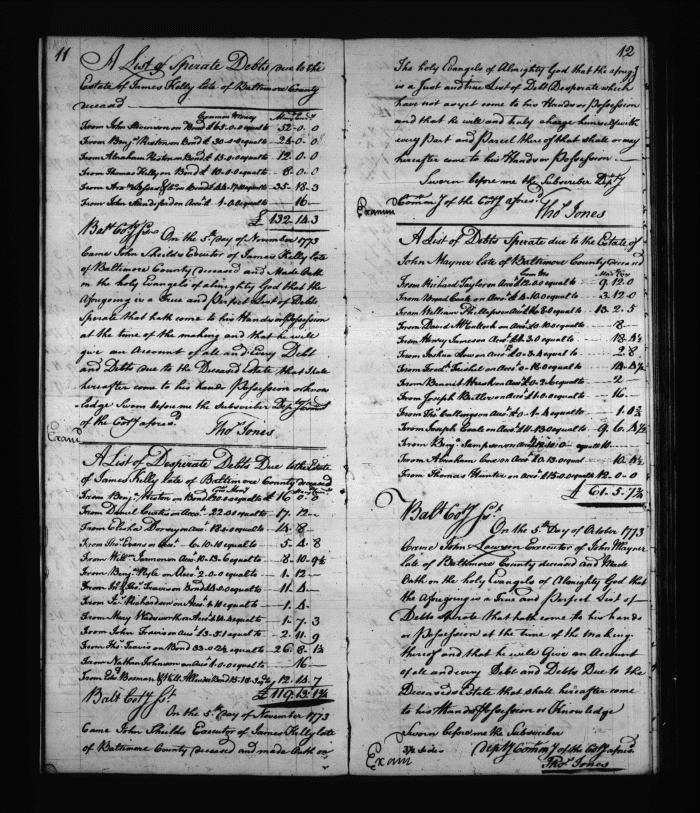 11
A List of Sperate Debts due to the
Estate of James Kelly late of Baltimore County
deceased
Common Money
From John Stevenson on Bond £65.0.0 equal to 52-0-0
From Benj.ª Heston on Bond £30.0.0 equal to 24-0-0
From Abraham Heston on Bond £15.0.0 equal to 12-0-0
From Thomas Kelley on Bond £10.0.0 equal to 8-0-0
on Bond £44.17 equal to 35-18-3
From John Standiford on Acc.t 1.0.0 equal to 16-
£ 132.14.3
Balt Co.ty Ss. On the 5.th Day of November 1773
Came John Sheilds Executor of James Kelly late
of Baltimore County deceased and Made Oath
on the holy Evangels of almighty God that the
Aforegoing is a True and Perfect List of Debts
Sperate that hath come to his Hands or Possession
at the time of the making and that he will
give an Account of all and Every Debt
and Debts due to the Deceased Estate that shall
hereafter come to his Hands Possession or know
ledge Sworn before me the Subscriber Dep.ty Com.ry
of the Co.ty afores.d Tho.s Jones
Exam.d
A List of Desperate Debts Due to the Estate
of James Kelly late of Baltimore County deceased
From Benj.ª Heston on Bond £20.0.0 equal to £ 16.0.0
From Daniel Curtis on Acc.t 22.0.0 equal to 17.12-
From Elisha Dorsey on Acc.t 18.6.0 equal to 14.8
From Tho.s Evans on Acc.t 6.10.10 equal to 5.4.8
From Will.m Jamomon Acc.t 10.13.6 equal to 8-10.9½
From Benj.ª on Acc.t 2.0.0 equal to 1.12-
Travis on Bond £14.0.0 equal to 11.4-
From Ja.s Richardson on Acc.t 1.10 equal to 1.4-
From Mary Wadsworth on Acc.t 1.14.4 equal to 1-7.3
From John Travis on Acc.t £3.5.1 equal to 2.11.9
From Tho.s Travis on Bond 33.0.2½ equal to 26.8-1¾
From Nathan Johnson on Acc.t 1.0.0 equal to 16-
From Edw.d Bosman on Bond 15.18.3 equal to 12.14.7
£ 119.13.1¾
Balt Co.ty Ss.
On the 5.th Day of November 1773
Came John Sheilds Executor of James Kelly late
of Baltimore County deceased and made Oath on
12
The holy Evangels of Almighty God that the afores.d
is a Just and true List of Debts Desperate which
have not as yet come to his Hands or Possession
and that he will and truly charge himself with
every Part and Parcel thereof that shall or may
hereafter come to his Hands or Possession
Sworn before me the Subscriber Dep.ty
Com.ry of the Co.ty afores.d
Tho.s Jones
Exam.d
A List of Debts Sperate due to the Estate of
John Mayner late of Baltimore County deceased
From Richard Taylor on Acc.t 12.0.0 equal to 9.12.0
From Coale on Acc.t 4.10.0 equal to 3.12.0
From William Phillips on Acc.t equal to 13.2.5
From David McCulloch on Acc.t 0.10.0 equal to 8-
From Henry James on Acc.t £1.3.0 equal to 18.4½
From Joshua Low on Acc.t £0.3.4 equal to 2.8
From Fred.k Frishel on Acc.t 0.18.0 equal to
From Bennit on Acc.t 0.2.6 equal to 2-
From Joseph Butler on Acc.t 1.0.0 equal to 16-
From Tho.s Cullings on Acc.t 0.1.4 equal to
From Joseph Coale on Acc.t £11.13.0 equal to
From Benj.ª Sampson on Acc.t equal to 10-
From Abraham on Acc.t £0.13.0 equal
From Thomas Hunter on Acc.t £15.0.0 equal to 12-0-0
£ 61.5.7¾
Balt Co.ty Ss.
On the 5.th Day of October 1773
Came John Lawson Executor of John Mayner
late of Baltimore County deceased and Made
Oath on the holy Evangels of Almighty God that
the Aforegoing is a True and Perfect List of
Debts Sperate that hath come to his hands
or Possession at the time of the making
thereof and that he will Give an Account
of all and every Debt and Debts Due to the
Deceaseds Estate that shall hereafter come
to his Hands Possession or Knowledge
Sworn before me the Subscriber
Dep.ty Com.ry of the Co.ty afores.d
Exam
Tho.s Jones